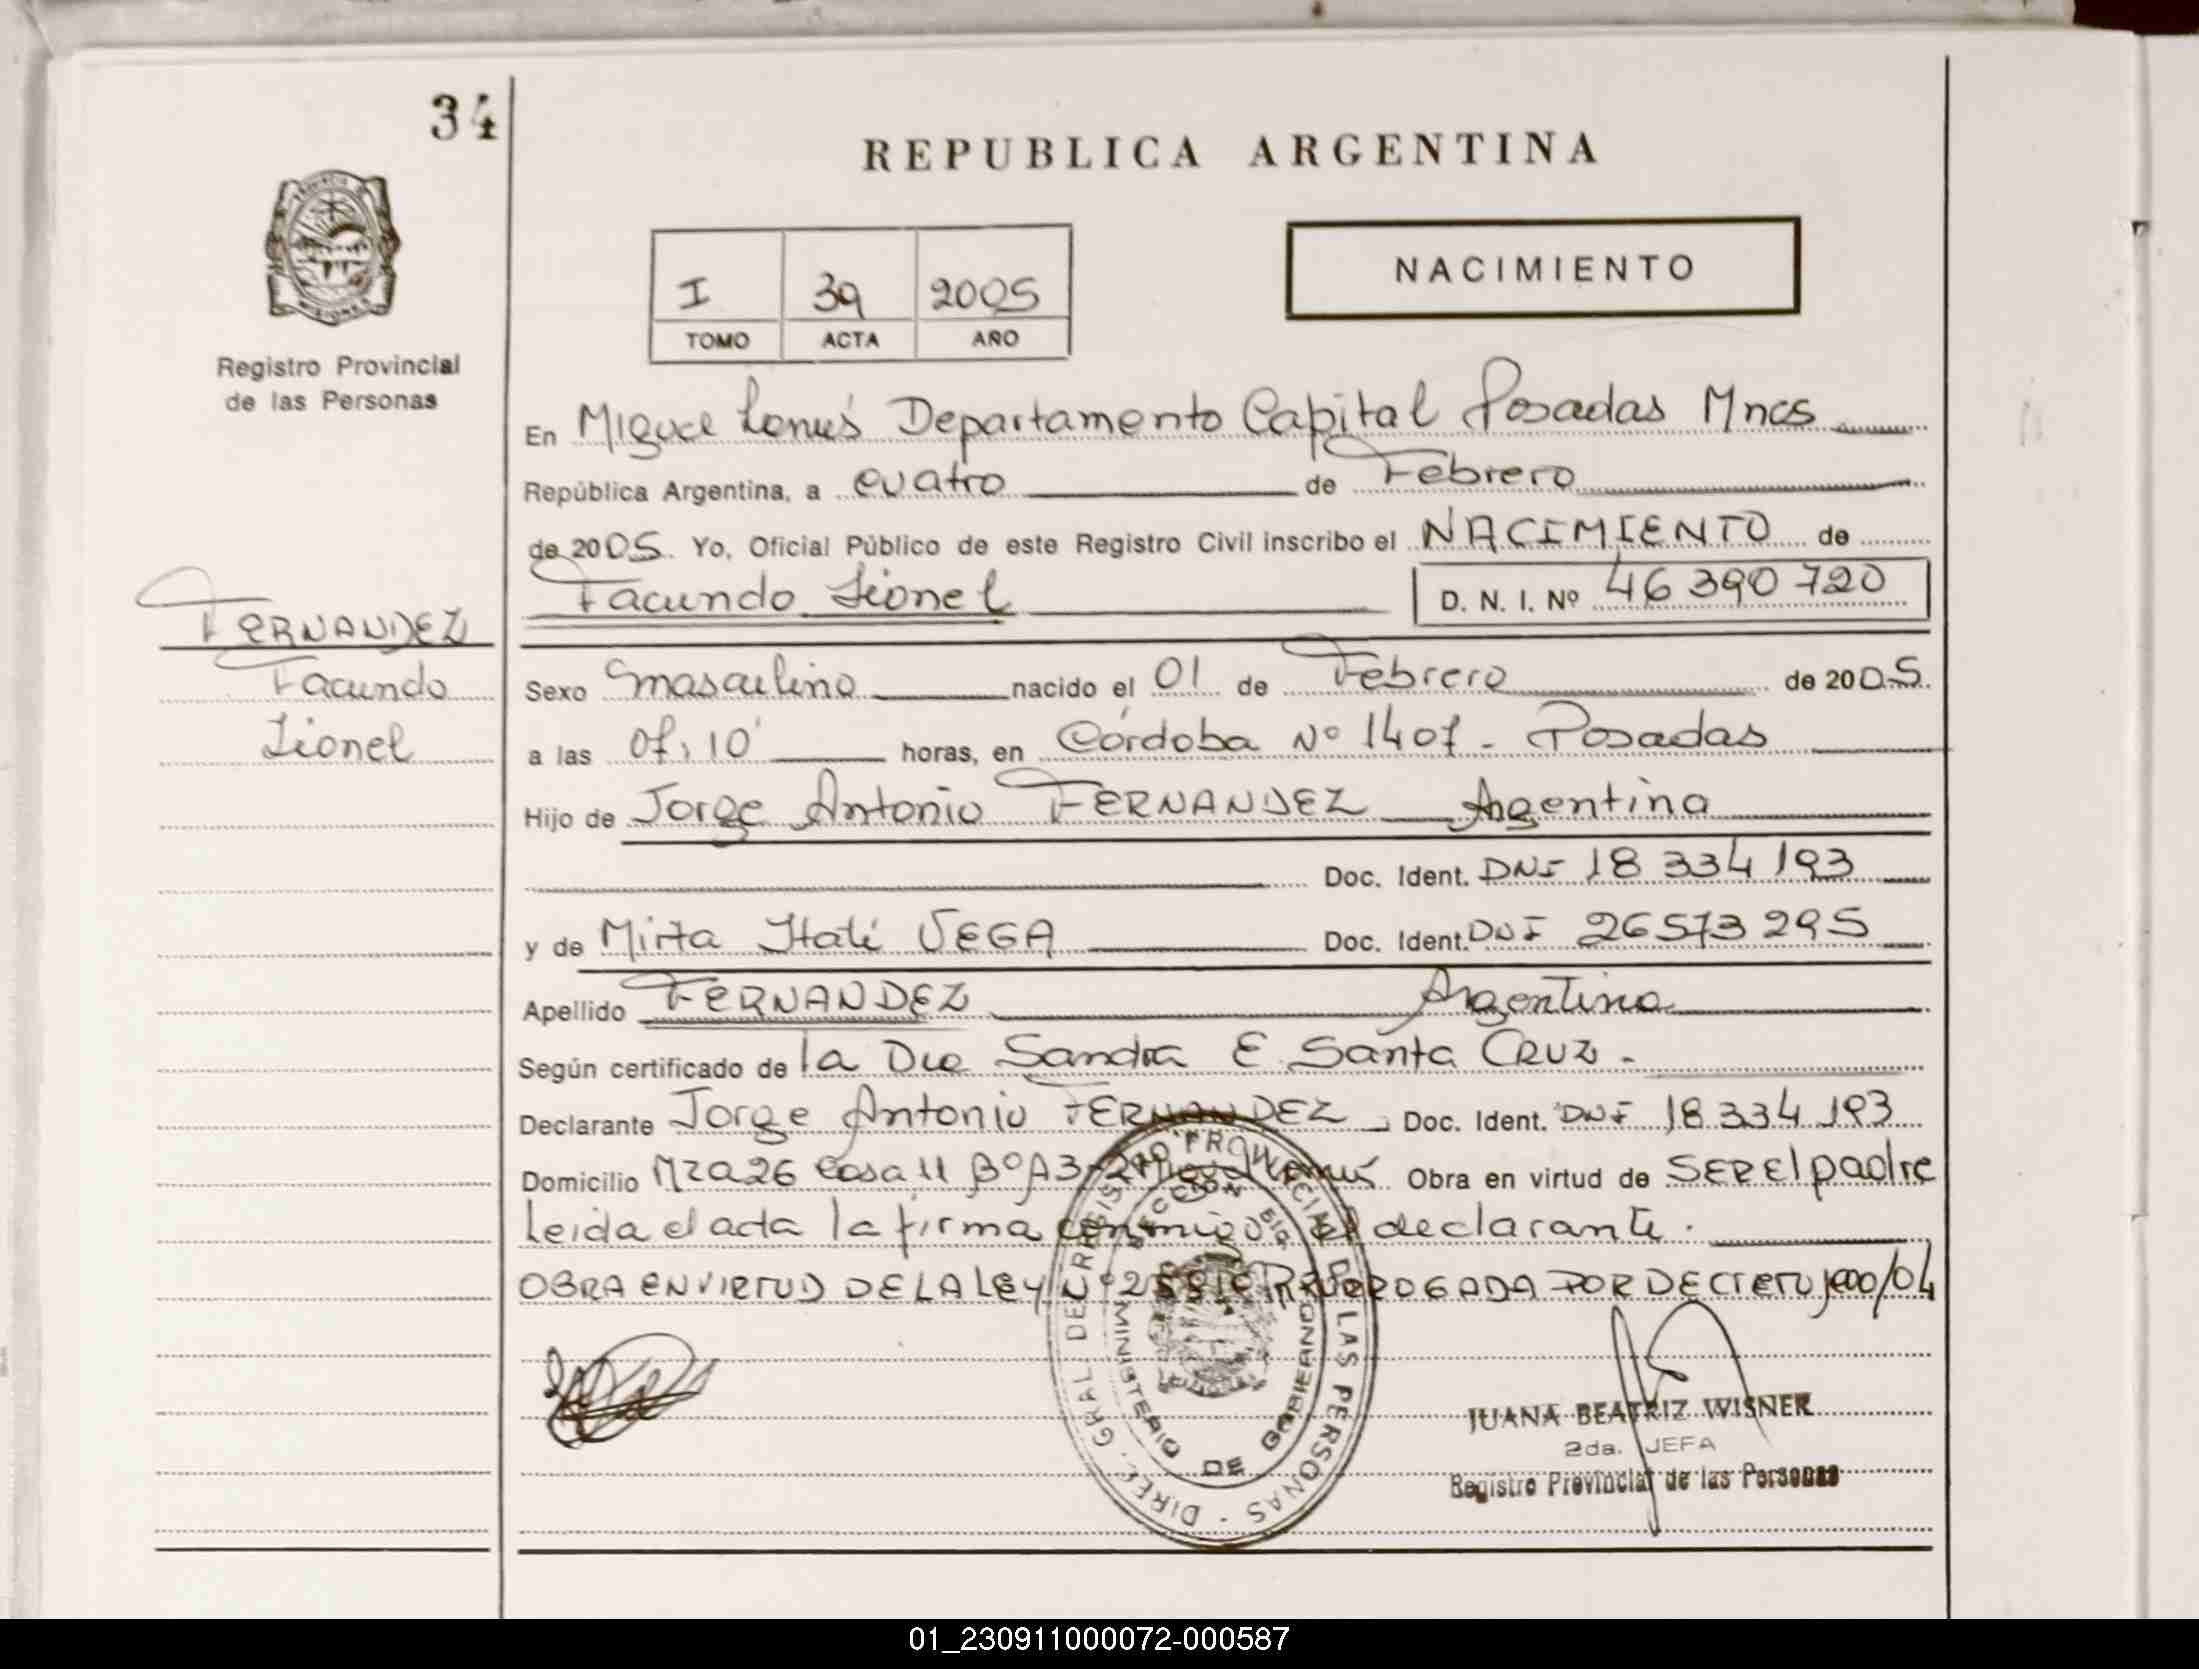 34
REPUBLICA ARGENTINA
I 39 2005
TOMO ACTA AÑO
NACIMIENTO
Registro Provincial
de las Personas
En Miguel Lanús Departamento Capital Posadas Mnes
República Argentina, a cuatro de Febrero
de 2005. Yo, Oficial Público de este Registro Civil inscribo el NACIMIENTO de
Facundo Lionel D. N. I. Nº 46 390 720
FERNANDEZ
Facundo
Lionel
Sexo masculino nacido el 01 de Febrero de 2005.
a las 07,10' horas, en Córdoba Nº 1407 - Posadas
Hijo de Jorge Antonio FERNANDEZ Argentina
Doc. Ident. DNI 18 334 193
y de Mirta Itatí VEGA Doc. Ident. DNI 26 573 295
Apellido FERNANDEZ Argentina
Según certificado de la Dra Sandra E. Santa CRUZ -
Declarante Jorge Antonio FERNANDEZ Doc. Ident. DNI 18 334 193
Domicilio Mza 26 Casa 11 Bº A3-2 Lanús Obra en virtud de SER El padre
Leida el acta la firma conmigo el declarante.
OBRA EN VIRTUD DE LA LEY Nº PRORROGADA POR DECRETO /04
DIREC. GRAL. DE REGISTRO PROVINCIAL DE LAS PERSONAS
MINISTERIO DE GOBIERNO
JUANA BEATRIZ WISNER
2da. JEFA
Registro Provincial de las Personas
01_230911000072-000587